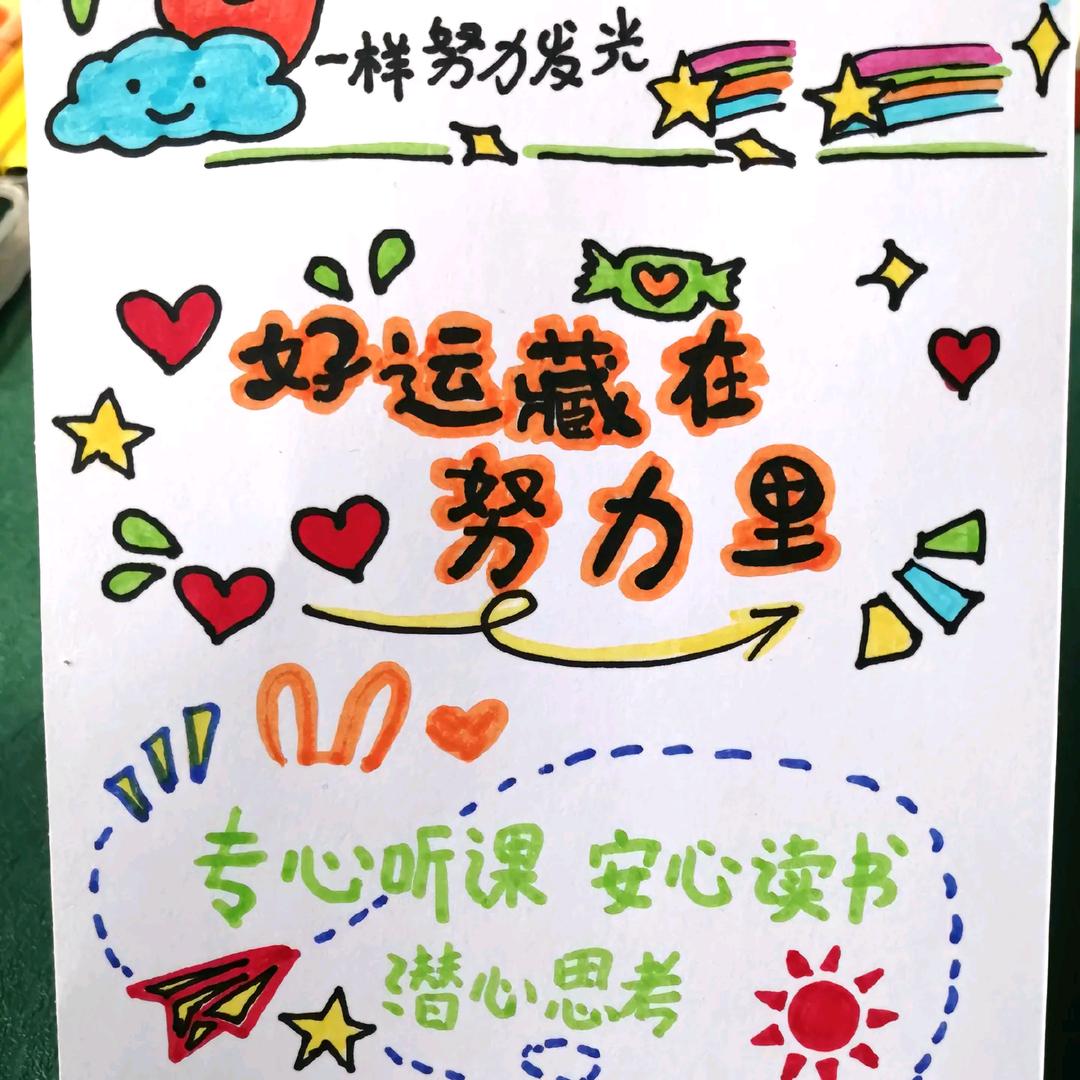 一样努力发光
好运藏在
努力里
专心听课 安心读书
潜心思考